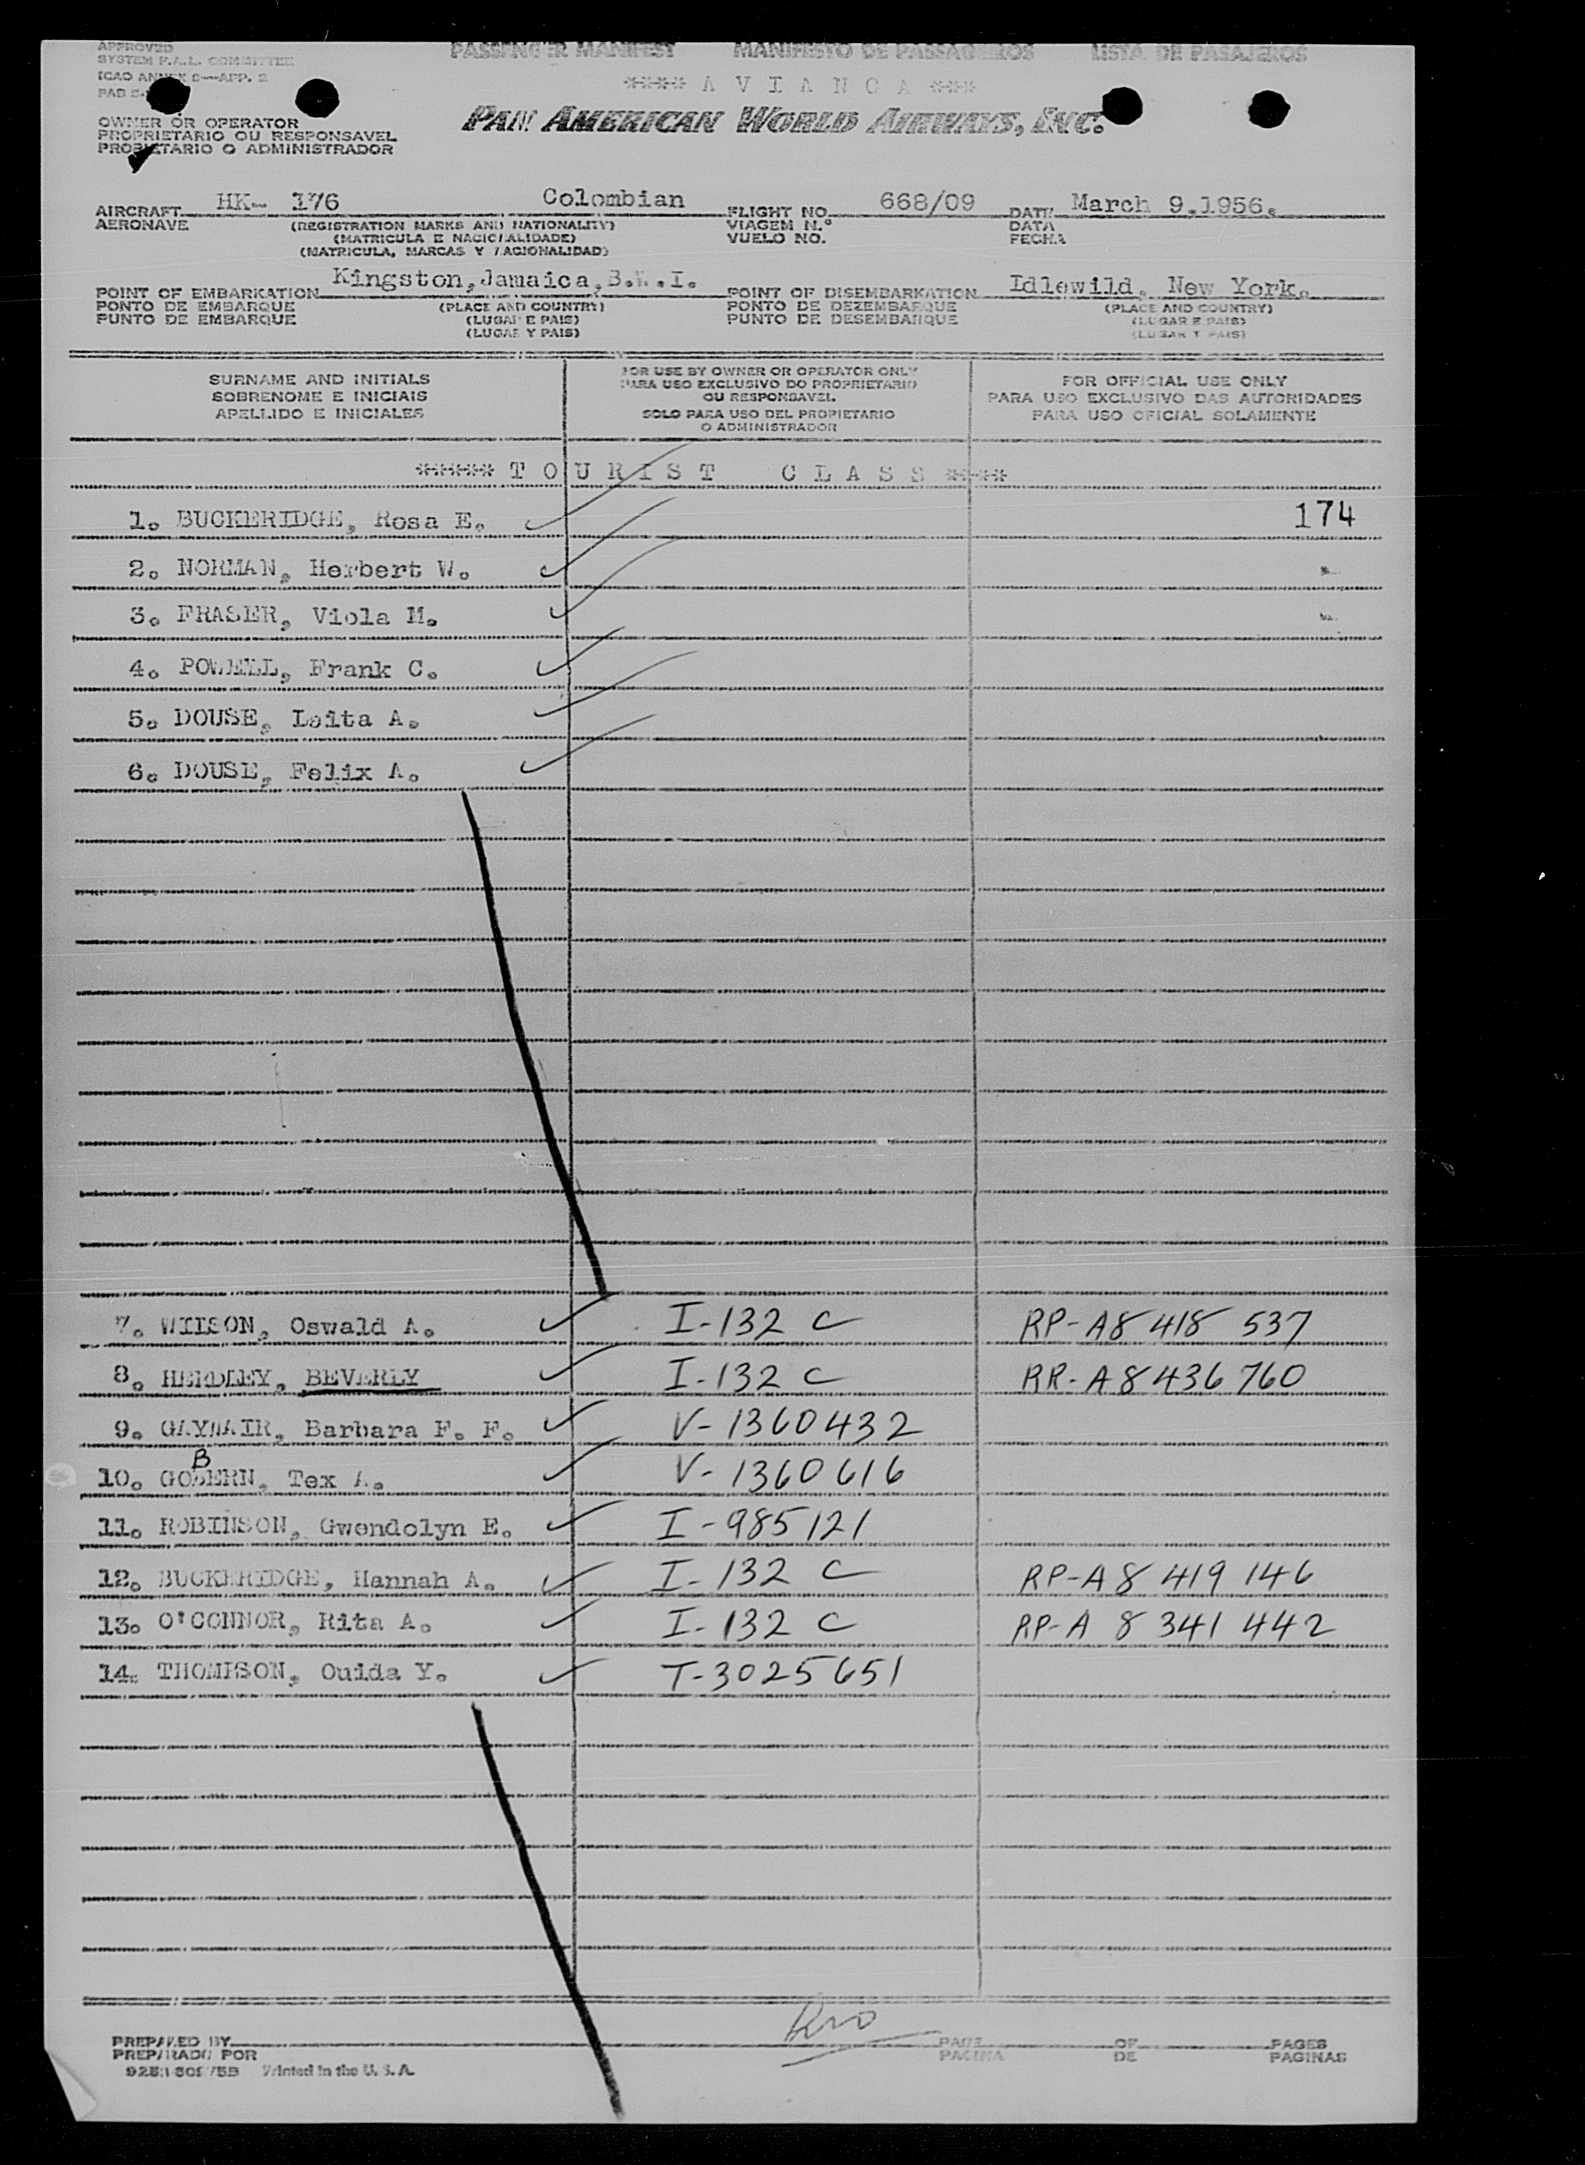 APPROVED
SYSTEM P.A.L. COMMITTEE
ICAO ANNEX 9—APP. 2
PASSENGER MANIFEST MANIFESTO DE PASSAGEIROS LISTA DE PASAJEROS
**** A V I A N C A ***
PAN AMERICAN WORLD AIRWAYS, INC.
OWNER OR OPERATOR
PROPRIETARIO OU RESPONSAVEL
PROPIETARIO O ADMINISTRADOR
AIRCRAFT HK- 176 Colombian FLIGHT NO. 668/09 DATE March 9,1956.
AERONAVE (REGISTRATION MARKS AND NATIONALITY) VIAGEM N.° DATA
(MATRICULA E NACIONALIDADE) VUELO NO. FECHA
(MATRICULA, MARCAS Y NACIONALIDAD)
POINT OF EMBARKATION Kingston,Jamaica,B.W.I. POINT OF DISEMBARKATION Idlewild, New York.
PONTO DE EMBARQUE (PLACE AND COUNTRY) PONTO DE DEZEMBARQUE (PLACE AND COUNTRY)
PUNTO DE EMBARQUE (LUGAR E PAIS) PUNTO DE DESEMBARQUE (LUGAR E PAIS)
(LUGAR Y PAIS) (LUGAR Y PAIS)
SURNAME AND INITIALS
SOBRENOME E INICIAIS
APELLIDO E INICIALES
FOR USE BY OWNER OR OPERATOR ONLY
PARA USO EXCLUSIVO DO PROPRIETARIO
OU RESPONSAVEL
SOLO PARA USO DEL PROPIETARIO
O ADMINISTRADOR
FOR OFFICIAL USE ONLY
PARA USO EXCLUSIVO DAS AUTORIDADES
PARA USO OFICIAL SOLAMENTE
***** T O U R I S T C L A S S ****
1. BUCKERIDGE, Rosa E. 174
2. NORMAN, Herbert W.
3. FRASER, Viola M.
4. POWELL, Frank C.
5. DOUSE, Leita A.
6. DOUSE, Felix A.
7. WILSON, Oswald A. I-132 C RP-A8 418 537
8. HENDLEY, BEVERLY I-132 C RR-A8436760
9. GAYNAIR, Barbara F. F. V-1360432
B
10. GOBERN, Tex A. V-1360616
11. ROBINSON, Gwendolyn E. I-985121
12. BUCKERIDGE, Hannah A. I-132 C RP-A8 419 146
13. O'CONNOR, Rita A. I-132 C RP-A 8 341 442
14. THOMISON, Ouida Y. T-3025651
PREPARED BY PAGE OF PAGES
PREPARADO POR PAGINA DE PAGINAS
Printed in the U. S. A.